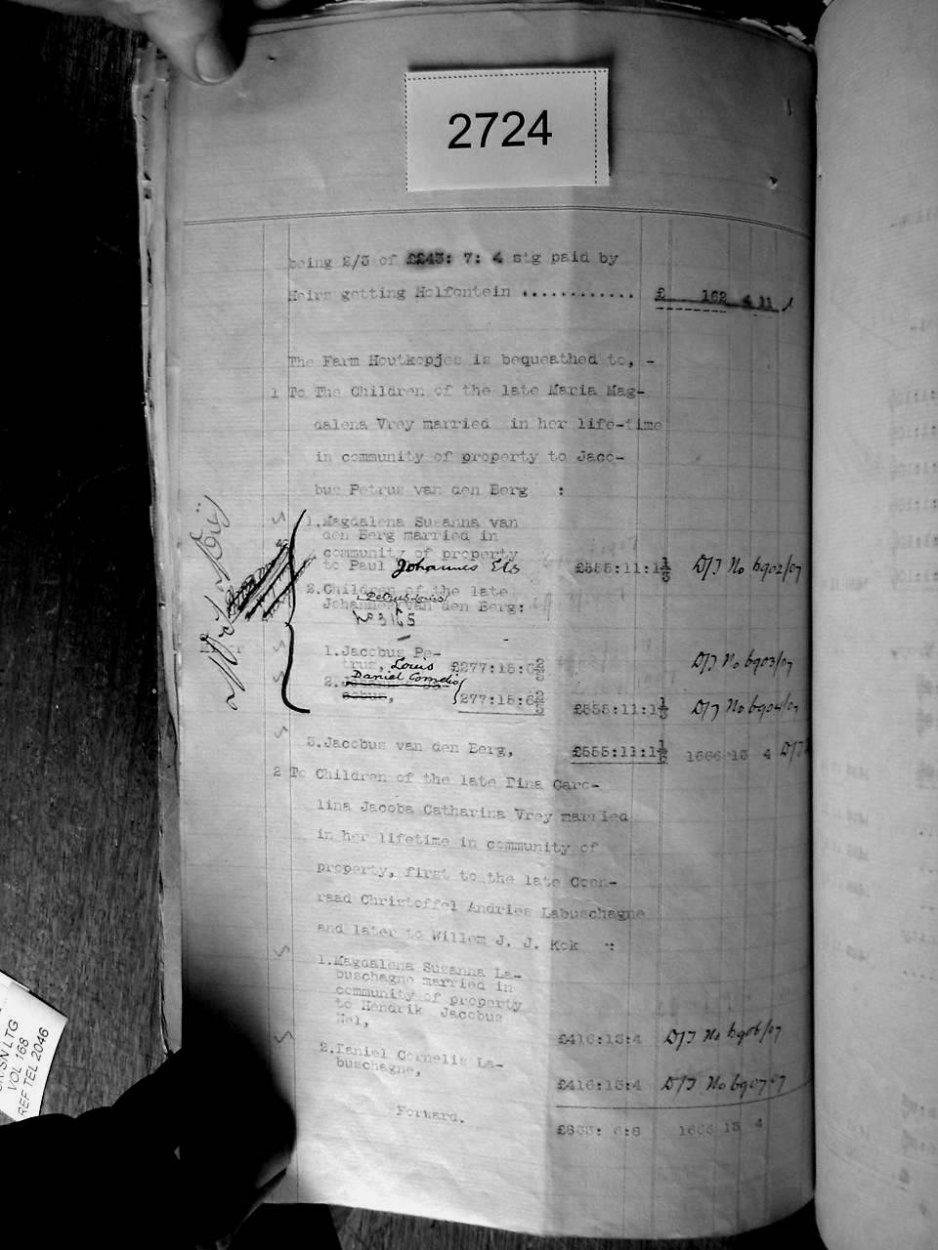 2724
being 2/3 of ££243: 7: 4 stg paid by
Heirs getting Holfontein ............ £ 162 4 11
The Farm Houtkopjes is bequeathed to, -
1 To The Children of the late Maria Mag-
dalena Vrey married in her life-time
in community of property to Jaco-
bus Petrus van den Berg :
1. Magdalena Susanna van
den Berg married in
community of property
to Paul Johannes Els £555:11:1⅓ D/T No 6902/07
2. Children of the late
Petrus Louis
Johannes van den Berg:
1. Jacobus Pe-
trus, Louis £277:15:6⅔ D/T No 6903/07
Daniel Cornelis
2.
277:15:6⅔ £555:11:1⅓ D/T No 6904/07
3. Jacobus van den Berg, £555:11:1⅓ 1666 13 4 D/T
2 To Children of the late Dina Caro-
lina Jacoba Catharina Vrey married
in her lifetime in community of
property, first to the late Coen-
raad Christoffel Andries Labuschagne
and later to Willem J. J. Kok :
1. Magdalena Susanna La-
buschagne married in
community of property
to Hendrik Jacobus
Nel, £416:13:4 D/T No 6906/07
2. Daniel Cornelis La-
buschagne, £416:13:4 D/T No 6907/07
Forward. £833: 6:8 1666 13 4
SN LTG
VOL 168
REF TEL 2046